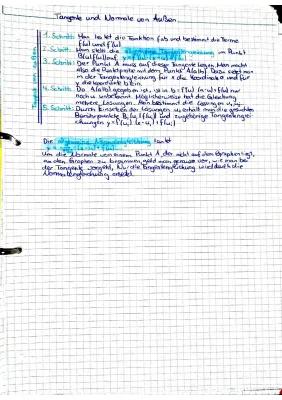 Tangente und Normale von Außen
1. Schritt: Man leitet die Funktion f ab und bestimmt die Terme
f(u) und f'(u)
2. Schritt: Man stellt die Tangentengleichung im Punkt
B(u|f(u)) auf.
3. Schritt: Der Punkt A muss auf dieser Tangente liegen. Man macht
also die Punktprobe mit dem Punkt A(a|b). Dazu setzt man
in der Tangentengleichung für x die Koordinate a und für
y die Koordinate b ein.
4. Schritt: Da A(a|b) gegeben ist, ist in b = f'(u) (a-u) + f(u) nur
noch u unbekannt. Möglicherweise hat die Gleichung
mehrere Lösungen. Man bestimmt die Lösungen u
5. Schritt: Durch Einsetzen der Lösungen u erhält man die gesuchten
Berührpunkte B(u|f(u)) und zugehörige Tangentenglei-
chungen y = f'(u) (x-u) + f(u)
Tangente von außen
Die allgemeine Normalengleichung lautet
Um die Normale von einem Punkt A, der nicht auf dem Graphen liegt,
an den Graphen zu bestimmen, geht man genauso vor, wie man bei
der Tangente vorgeht. Nur die Tangentengleichung wird durch die
Normalengleichung ersetzt.